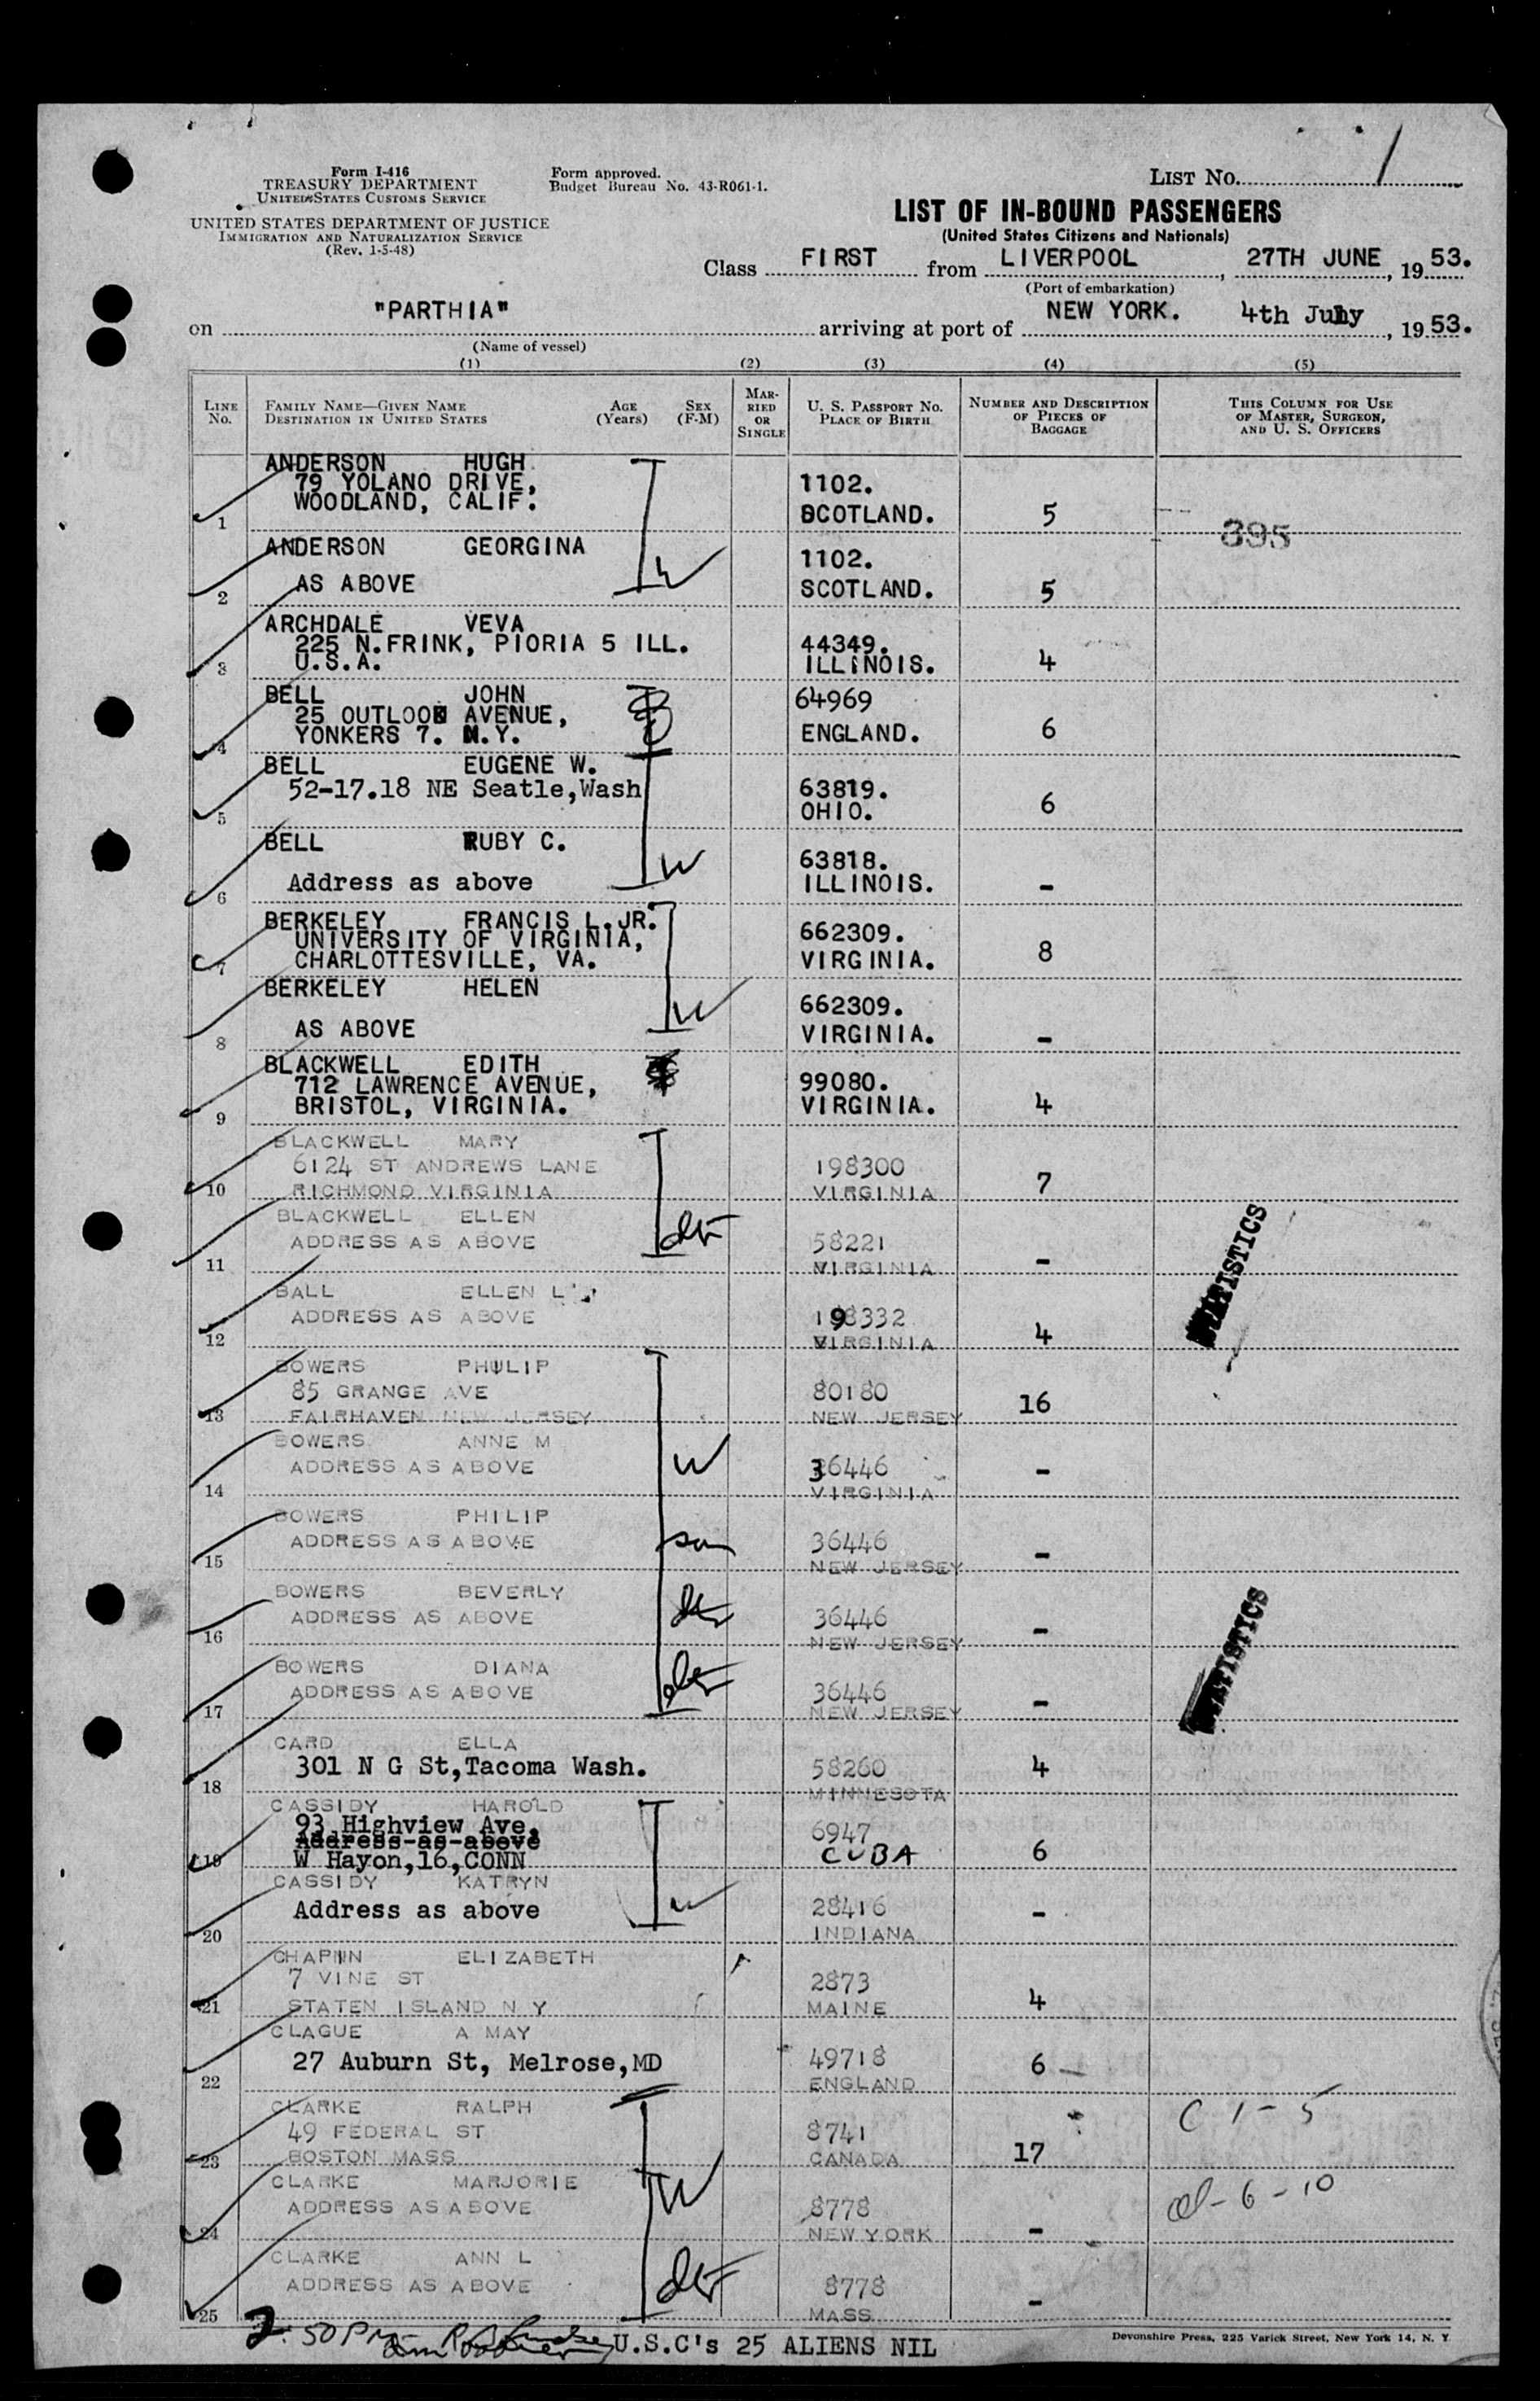 Form I-416
TREASURY DEPARTMENT
UNITED STATES CUSTOMS SERVICE
UNITED STATES DEPARTMENT OF JUSTICE
IMMIGRATION AND NATURALIZATION SERVICE
(Rev. 1-5-48)
Form approved.
Budget Bureau No. 43-R061-1.
LIST NO. 1
LIST OF IN-BOUND PASSENGERS
(United States Citizens and Nationals)
Class FIRST from LIVERPOOL, 27TH JUNE, 1953.
(Port of embarkation)
on "PARTHIA" arriving at port of NEW YORK. 4th July, 1953.
(Name of vessel)
(1) (2) (3) (4) (5)
LINE No. FAMILY NAME—GIVEN NAME DESTINATION IN UNITED STATES AGE (Years) SEX (F-M) MARRIED OR SINGLE U. S. PASSPORT NO. PLACE OF BIRTH NUMBER AND DESCRIPTION OF PIECES OF BAGGAGE THIS COLUMN FOR USE OF MASTER, SURGEON, AND U. S. OFFICERS
ANDERSON HUGH
79 YOLANO DRIVE, 1102.
1 WOODLAND, CALIF. SCOTLAND. 5
395
ANDERSON GEORGINA 1102.
2 AS ABOVE W SCOTLAND. 5
ARCHDALE VEVA
225 N.FRINK, PIORIA 5 ILL. 44349.
3 U.S.A. ILLINOIS. 4
BELL JOHN 64969
25 OUTLOOK AVENUE,
4 YONKERS 7. N.Y. ENGLAND. 6
BELL EUGENE W.
52-17.18 NE Seatle,Wash 63819.
5 OHIO. 6
BELL RUBY C. 63818.
6 Address as above W ILLINOIS. -
BERKELEY FRANCIS L.JR.
UNIVERSITY OF VIRGINIA, 662309.
7 CHARLOTTESVILLE, VA. VIRGINIA. 8
BERKELEY HELEN 662309.
8 AS ABOVE W VIRGINIA. -
BLACKWELL EDITH
712 LAWRENCE AVENUE, 99080.
9 BRISTOL, VIRGINIA. VIRGINIA. 4
BLACKWELL MARY
6124 ST ANDREWS LANE 198300
10 RICHMOND VIRGINIA VIRGINIA 7
BLACKWELL ELLEN
ADDRESS AS ABOVE dtr 58221
11 VIRGINIA -
STATISTICS
BALL ELLEN L
ADDRESS AS ABOVE 198332
12 VIRGINIA 4
BOWERS PHILIP
85 GRANGE AVE 80180
13 FAIRHAVEN NEW JERSEY NEW JERSEY 16
BOWERS ANNE M
ADDRESS AS ABOVE W 36446
14 VIRGINIA -
BOWERS PHILIP
ADDRESS AS ABOVE son 36446
15 NEW JERSEY -
BOWERS BEVERLY
ADDRESS AS ABOVE dtr 36446
16 NEW JERSEY -
STATISTICS
BOWERS DIANA
ADDRESS AS ABOVE dtr 36446
17 NEW JERSEY -
CARD ELLA
301 N G St,Tacoma Wash. 58260 4
18 MINNESOTA
CASSIDY HAROLD
93 Highview Ave, 6947
Address-as-above
19 W Hayon,16,CONN CUBA 6
CASSIDY KATRYN
Address as above W 28416 -
20 INDIANA
CHAPIN ELIZABETH
7 VINE ST 2873
21 STATEN ISLAND N Y MAINE 4
CLAGUE A MAY
27 Auburn St, Melrose,MD 49718 6
22 ENGLAND
CLARKE RALPH C 1-5
49 FEDERAL ST 8741
23 BOSTON MASS CANADA 17
CLARKE MARJORIE
ADDRESS AS ABOVE W 8778 6-10
24 NEW YORK -
CLARKE ANN L
ADDRESS AS ABOVE dtr 8778
25 MASS -
2.50PM U.S.C's 25 ALIENS NIL
Devonshire Press, 225 Varick Street, New York 14, N. Y.